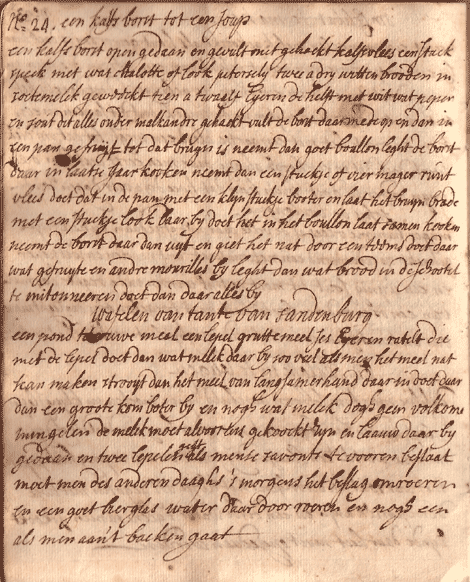 No 24. een kalfs borst tot een soup
een kalfs borst open gedaan en gevult met gehackt kalfsvlees een stuck
speck met wat chalotte of look petersely twee a dry witte brooden in
soetemelck geweickt tien a twaalf Eyeren de helft met wit wat peper
en sout dit alles onder malkandre gehackt vult de borst daar mede op en dan in
een pan gefruyt tot dat bruyn is neemt dan goet boullon leght de borst
daar in laat se gaar kooken neemt dan een stuckje of vier mager runt
vlees doet dat in de pan met een klyn stuckje booter en laat het bruyn brade
met een stuckje look daar by doet het in het boullon laat samen kooken
neemt de borst daar dan uyt en giet het nat door een doet daar
wat gefruyte en andre mourilles by leght dan wat brood in de schootel
te mitonneeren doet dan daar alles by
wafelen van tante van Sandenburg
een pond meel een lepel grutte meel ses Eyeren ratelt die
met de lepel doet dan wat melck daar by soo veel als men het meel nat
kan maken strooyt dan het meel van langsamerhand daar in doet daar
dan een groote kom boter by en nogh wat melck dogh geen volkome
mingelen de melck moet alvoorens gekoockt syn en laauw daar by
gedaan en twee lepelen gist als men se s'avonts te vooren beslaat
moet men des anderen daaghs 's morgens het beslag omroeren
en een goet bierglas water daar door roeren en nogh een
als men aan't backen gaat